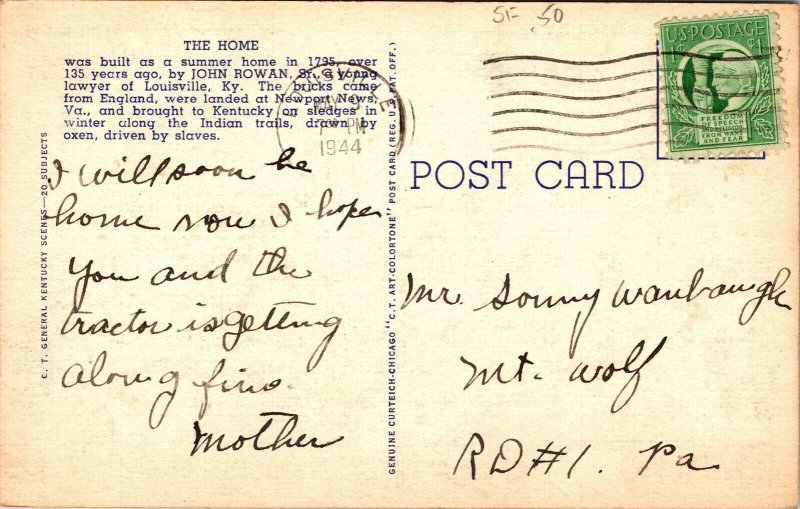 SF .50
THE HOME
was built as a summer home in 1795, over
135 years ago, by JOHN ROWAN, Sr., a young
lawyer of Louisville, Ky. The bricks came
from England, were landed at Newport News,
Va., and brought to Kentucky on sledges in
winter along the Indian trails, drawn by
oxen, driven by slaves.
PM
1944
U.S. POSTAGE
1¢
FREEDOM
OF SPEECH
AND RELIGION
FROM WANT
AND FEAR
POST CARD
C. T. GENERAL KENTUCKY SCENES—20 SUBJECTS
GENUINE CURTEICH-CHICAGO "C. T. ART-COLORTONE" POST CARD (REG. U. S. PAT. OFF.)
I will soon be
home now I hope
you and the
tractor is getting
along fine.
Mother
Mr. Sonny Wanbaugh
Mt. Wolf
RD #1. Pa